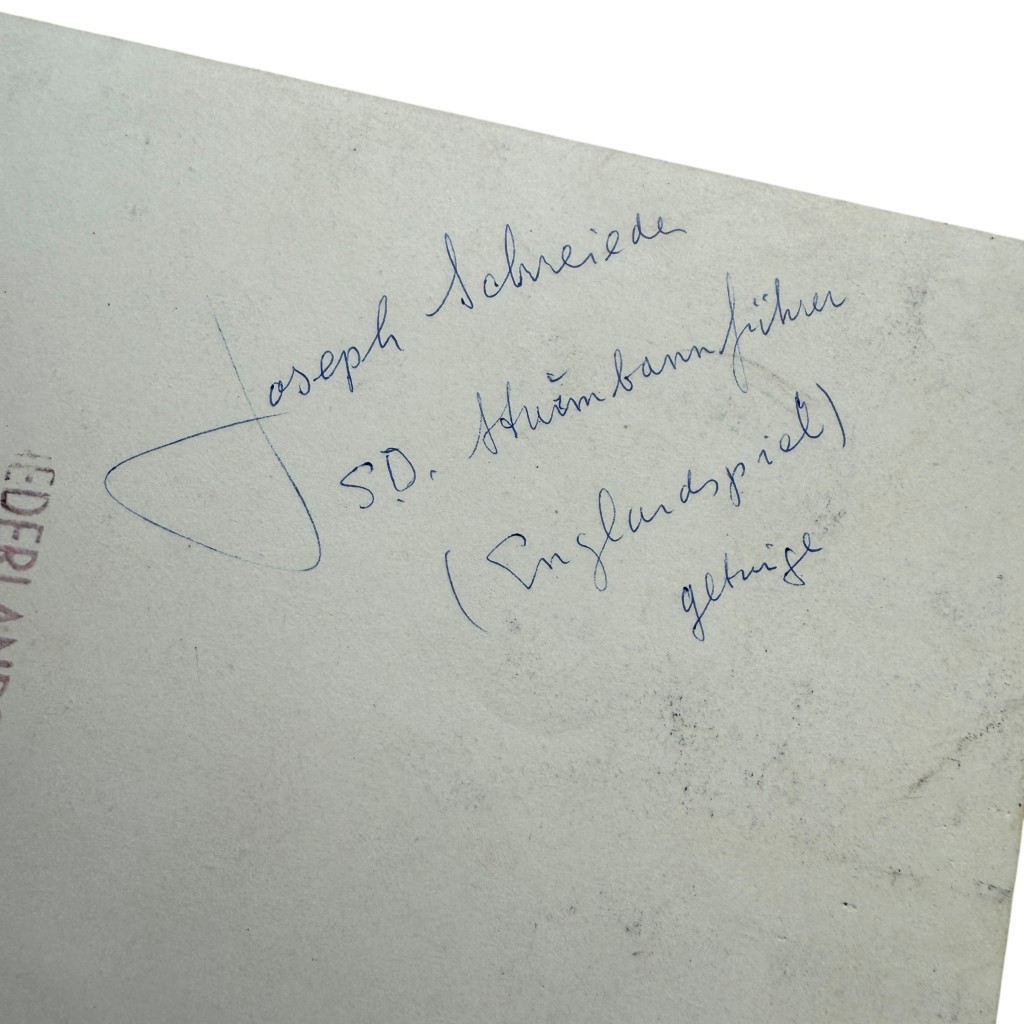 Joseph Schreieder
SD. Sturmbannführer
(Englandspiel)
getuige
NEDERLAND